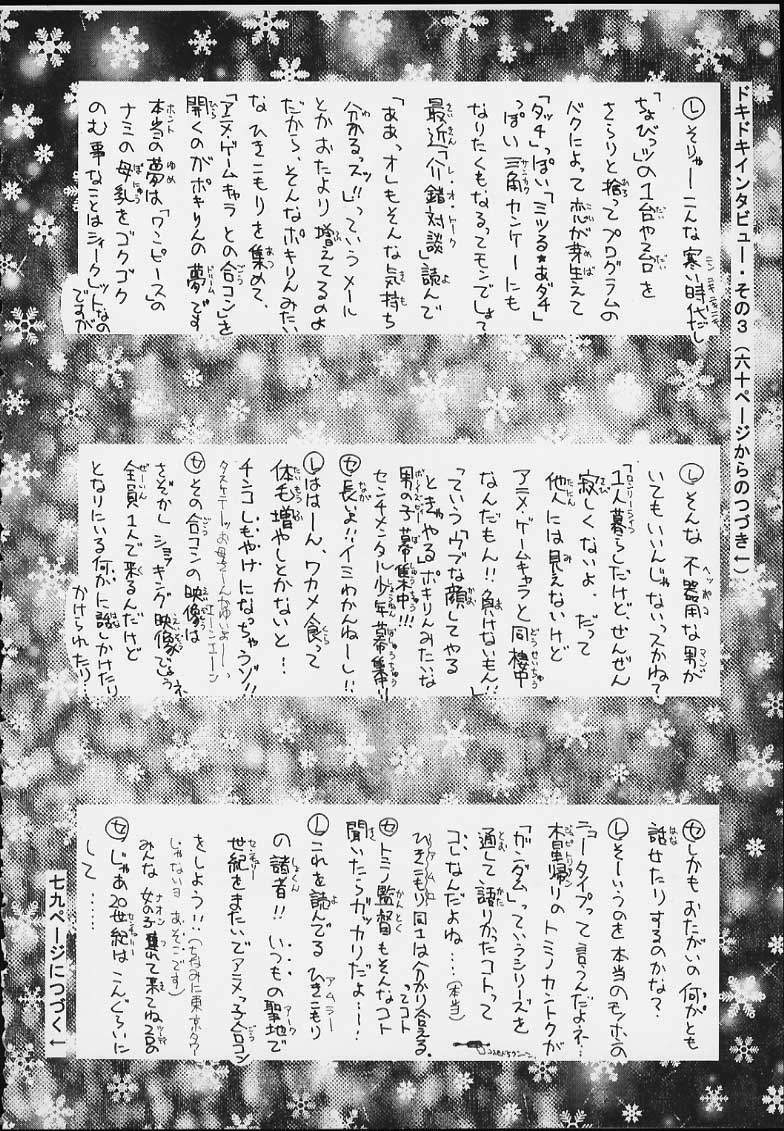 ドキドキインタビュー・その3 (六十ページからのつづき↓)
Ⓛそりゃーこんな寒い時代だし
「ちびっツ」の1台や2台を
さらりと捨ってプログラムの
バクによって恋が芽生えて
「タッチ」っぽい「ミツる★あダチ」
っぽい三角カンケーにも
なりたくもなるってモンでしょ?
最近「介錯対談」読んで
「ああっオレもそんな気持ち
分かるっスッ!!」っていうメール
とかおたより増えてるのよ
だから、そんなポキりんみたい
なひきこもりを集めて、
「アニメ・ゲームキャラとの合コン」を
開くのがポキりんの夢です
本当の夢は「ワンピース」の
ナミの母乳をゴクゴク
のむ事なことはシィークレットなの
ですが
Ⓛそんな不器用な男が
いてもいいんじゃないってかね?
1人暮らしだけど、ぜんぜん
寂しくないよ、だって
他人には見えないけど
アニメ・ゲームキャラと同棲中
なんだもん!!負けないもん!!」
っていう「ウブな顔してやる
ときゃやるポキりんみたいな
男の子募集中!!!
センチメンタル少年募集中!!
Ⓢ長いよ!!イミわかんねーし!!
Ⓛははーん、ワカメ食って
体毛増やしとかないと!!
チンコしもやけになっちゃうゾ!!
Ⓢその合コンの映像は
さぞかしショッキング映像でしょうネ、
全員1人で来るんだけど
となりにいる何かに話しかけたり
かけられたり…
Ⓢしかもおたがいの何かとも
話せたりするのかな?
Ⓛそーいうのを本当のモンホの
ニュータイプって言うんだよネ…
木星帰りのトミノカントクが
「ガンダム」っていうシリーズを
通して語りたかったコトって
コレなんだよね…(本当)
ひきこもり同士は分かり合える。
ってコト
Ⓢトミノ監督もそんなコト
聞いたらガッカリだよ…!
Ⓛこれを読んでるひきこもり
の諸君!!いつもの聖地で
世紀をまたいでアニメっ子合コン
をしよう!!(ちなみに東京タワー
じゃないヨ あそこです)
みんな女の子連れて来てね2台の
Ⓢじゃあ20世紀はこんぐらいに
して……
七九ページにつづく↓